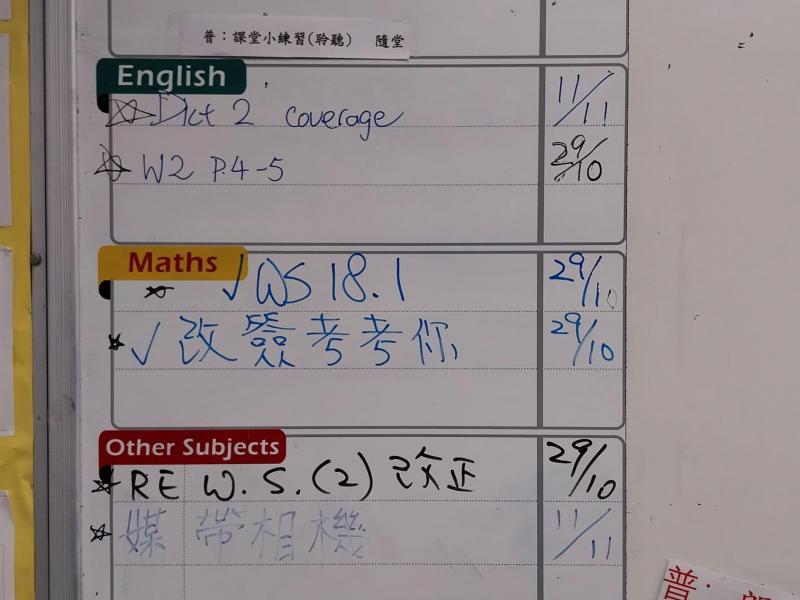 普：課堂小練習(聆聽)　隨堂
English
Dict 2 coverage 11/11
W2 P.4-5 29/10
Maths
✓WS 18.1 29/10
✓改簽考考你 29/10
Other Subjects
RE W.S.(2) 改正 29/10
媒 帶相機 11/11
普